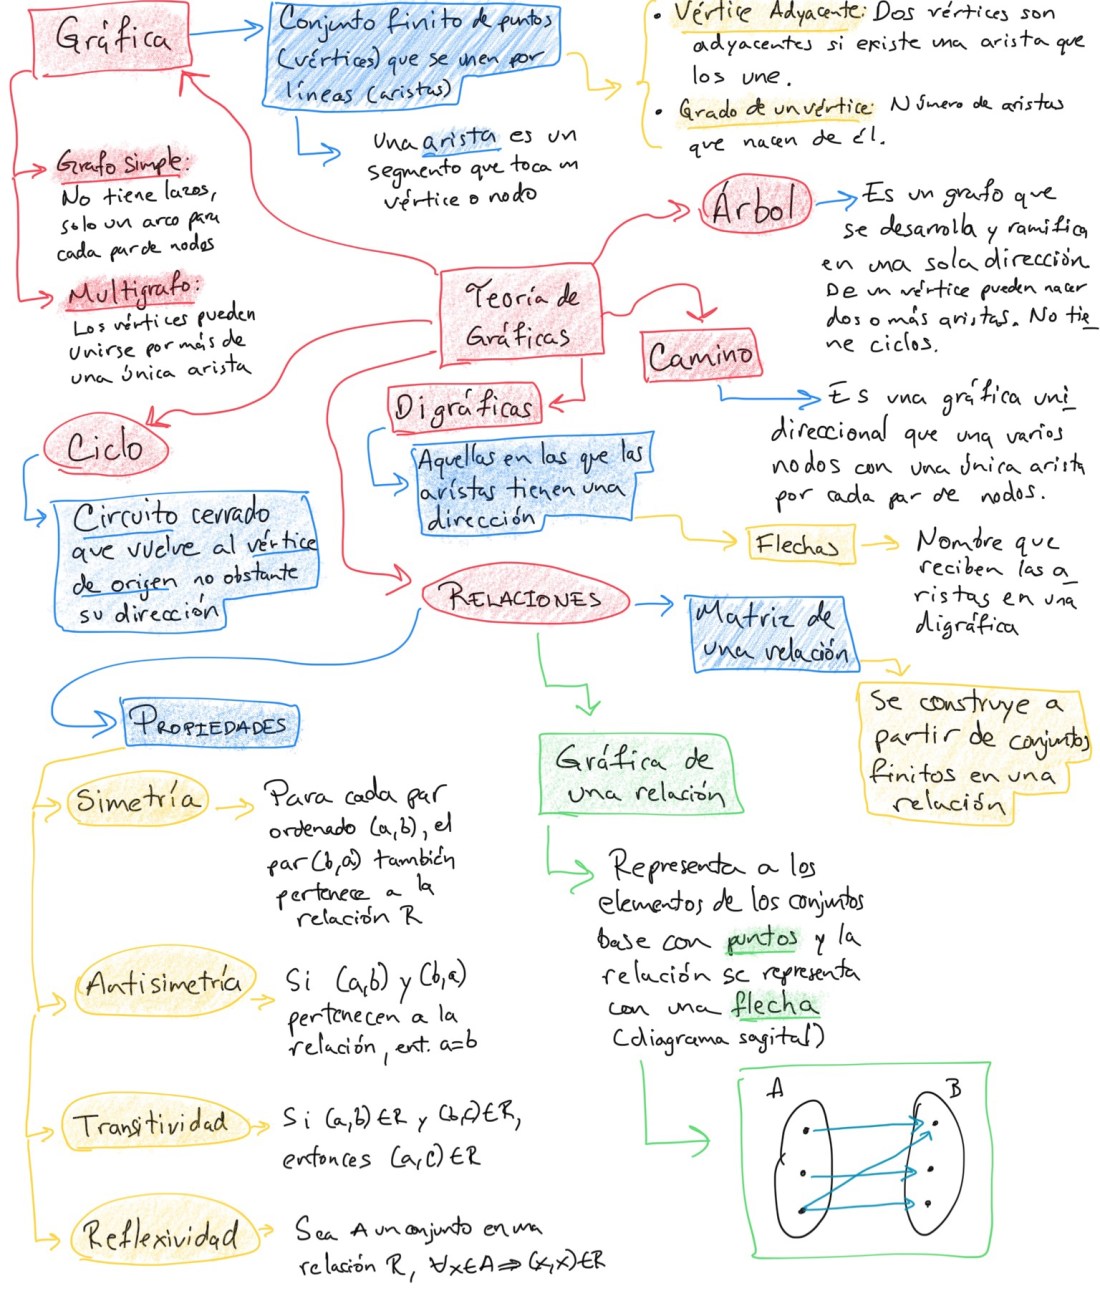 Gráfica
Conjunto finito de puntos
(vértices) que se unen por
líneas (aristas)
• Vértice Adyacente: Dos vértices son
adyacentes si existe una arista que
los une.
• Grado de un vértice: Número de aristas
que nacen de él.
Una arista es un
segmento que toca un
vértice o nodo
Grafo simple:
No tiene lazos,
solo un arco para
cada par de nodos
Multigrafo:
Los vértices pueden
unirse por más de
una única arista
Árbol
Es un grafo que
se desarolla y ramifica
en una sola dirección
De un vértice pueden nacer
dos o más aristas. No tie_
ne ciclos.
Teoría de
Gráficas
Camino
Es una gráfica uni_
direccional que una varios
nodos con una única arista
por cada par de nodos.
Digráficas
Aquellas en las que las
aristas tienen una
dirección
Flechas
Nombre que
reciben las a_
ristas en una
digráfica
Ciclo
Circuito cerrado
que vuelve al vértice
de origen no obstante
su dirección
RELACIONES
Matriz de
una relación
Se construye a
partir de conjuntos
finitos en una
relación
PROPIEDADES
Gráfica de
una relación
Representa a los
elementos de los conjuntos
base con puntos y la
relación se representa
con una flecha
(diagrama sagital)
A
B
Simetría
Para cada par
ordenado (a,b), el
par (b,a) también
pertenece a la
relación R
Antisimetría
Si (a,b) y (b,a)
pertenecen a la
relación, ent. a=b
Transitividad
Si (a,b)∈R y (b,c)∈R,
entonces (a,c)∈R
Reflexividad
Sea A un conjunto en una
relación R, ∀x∈A⇒(x,x)∈R